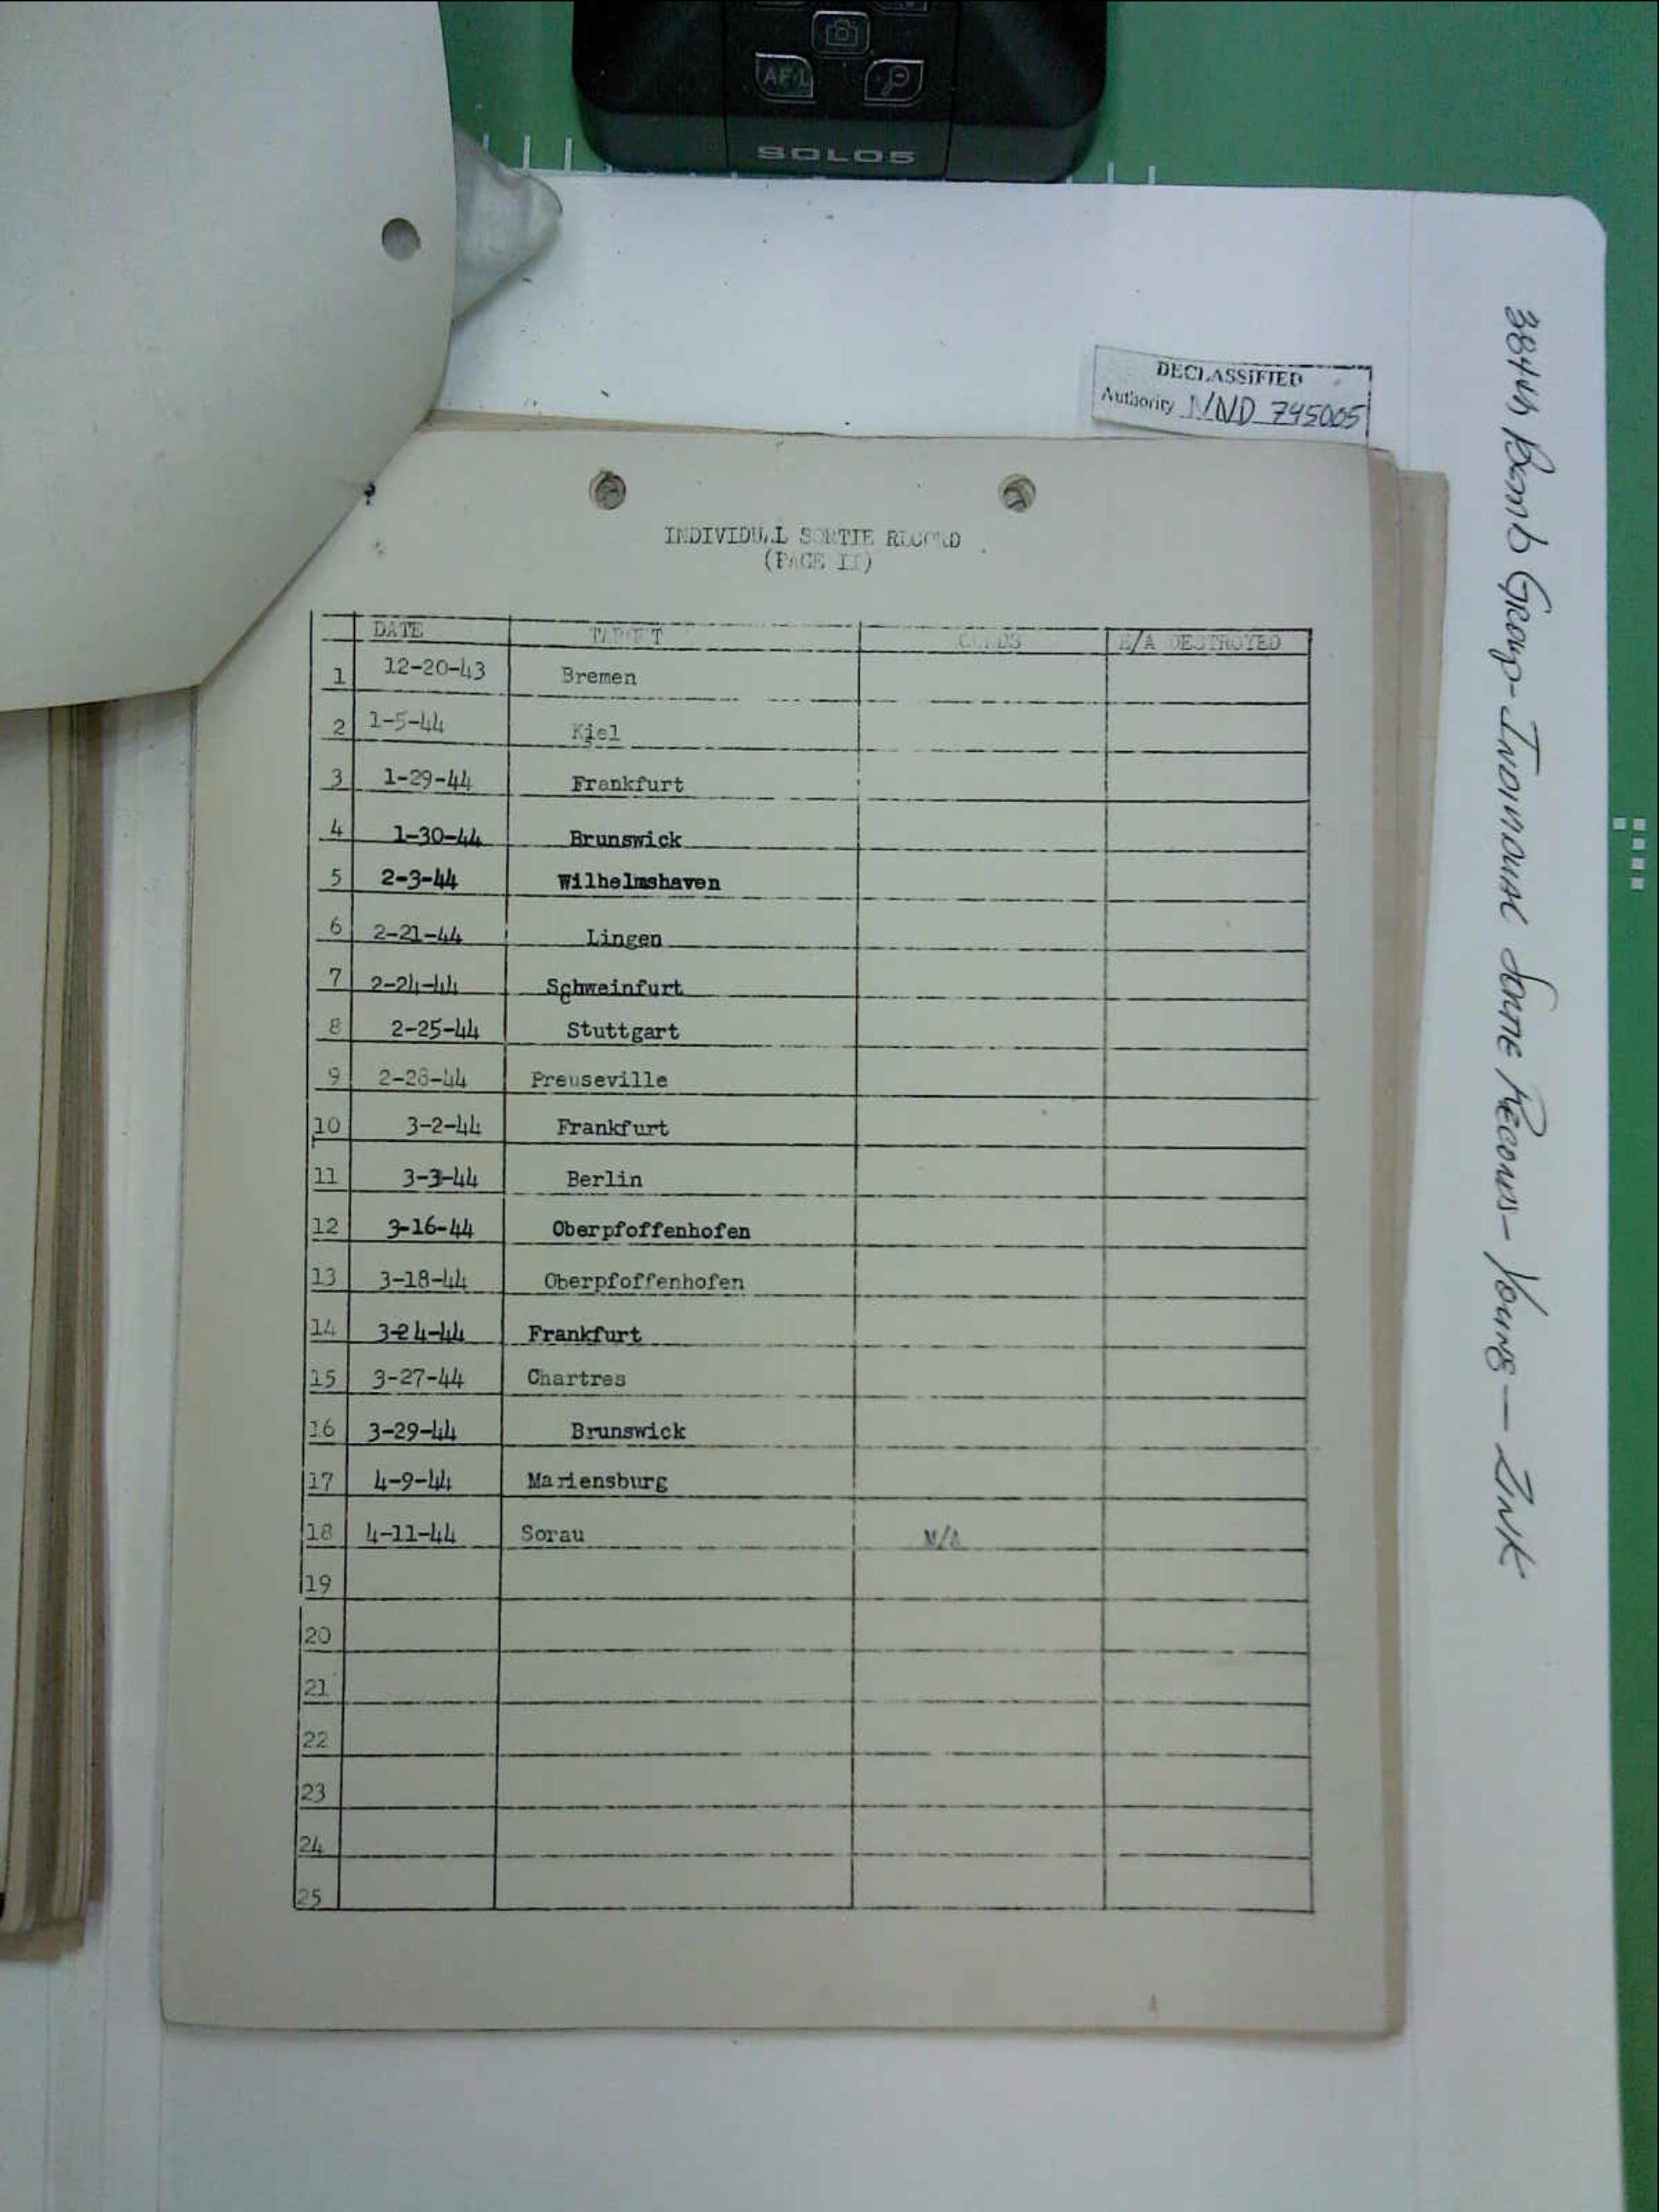 AF-L
SOLO5
DECLASSIFIED
Authority NND 745005
INDIVIDUAL SORTIE RECORD
(PAGE II)
DATE TARGET E/A DESTROYED
1 12-20-43 Bremen
2 1-5-44 Kiel
3 1-29-44 Frankfurt
4 1-30-44 Brunswick
5 2-3-44 Wilhelmshaven
6 2-21-44 Lingen
7 2-24-44 Schweinfurt
8 2-25-44 Stuttgart
9 2-28-44 Preuseville
10 3-2-44 Frankfurt
11 3-3-44 Berlin
12 3-16-44 Oberpfoffenhofen
13 3-18-44 Oberpfoffenhofen
14 3-24-44 Frankfurt
15 3-27-44 Chartres
16 3-29-44 Brunswick
17 4-9-44 Mariensburg
18 4-11-44 Sorau
19
20
21
22
23
24
25
384th Bomb Group - Individual Sortie Records - Young — Zink